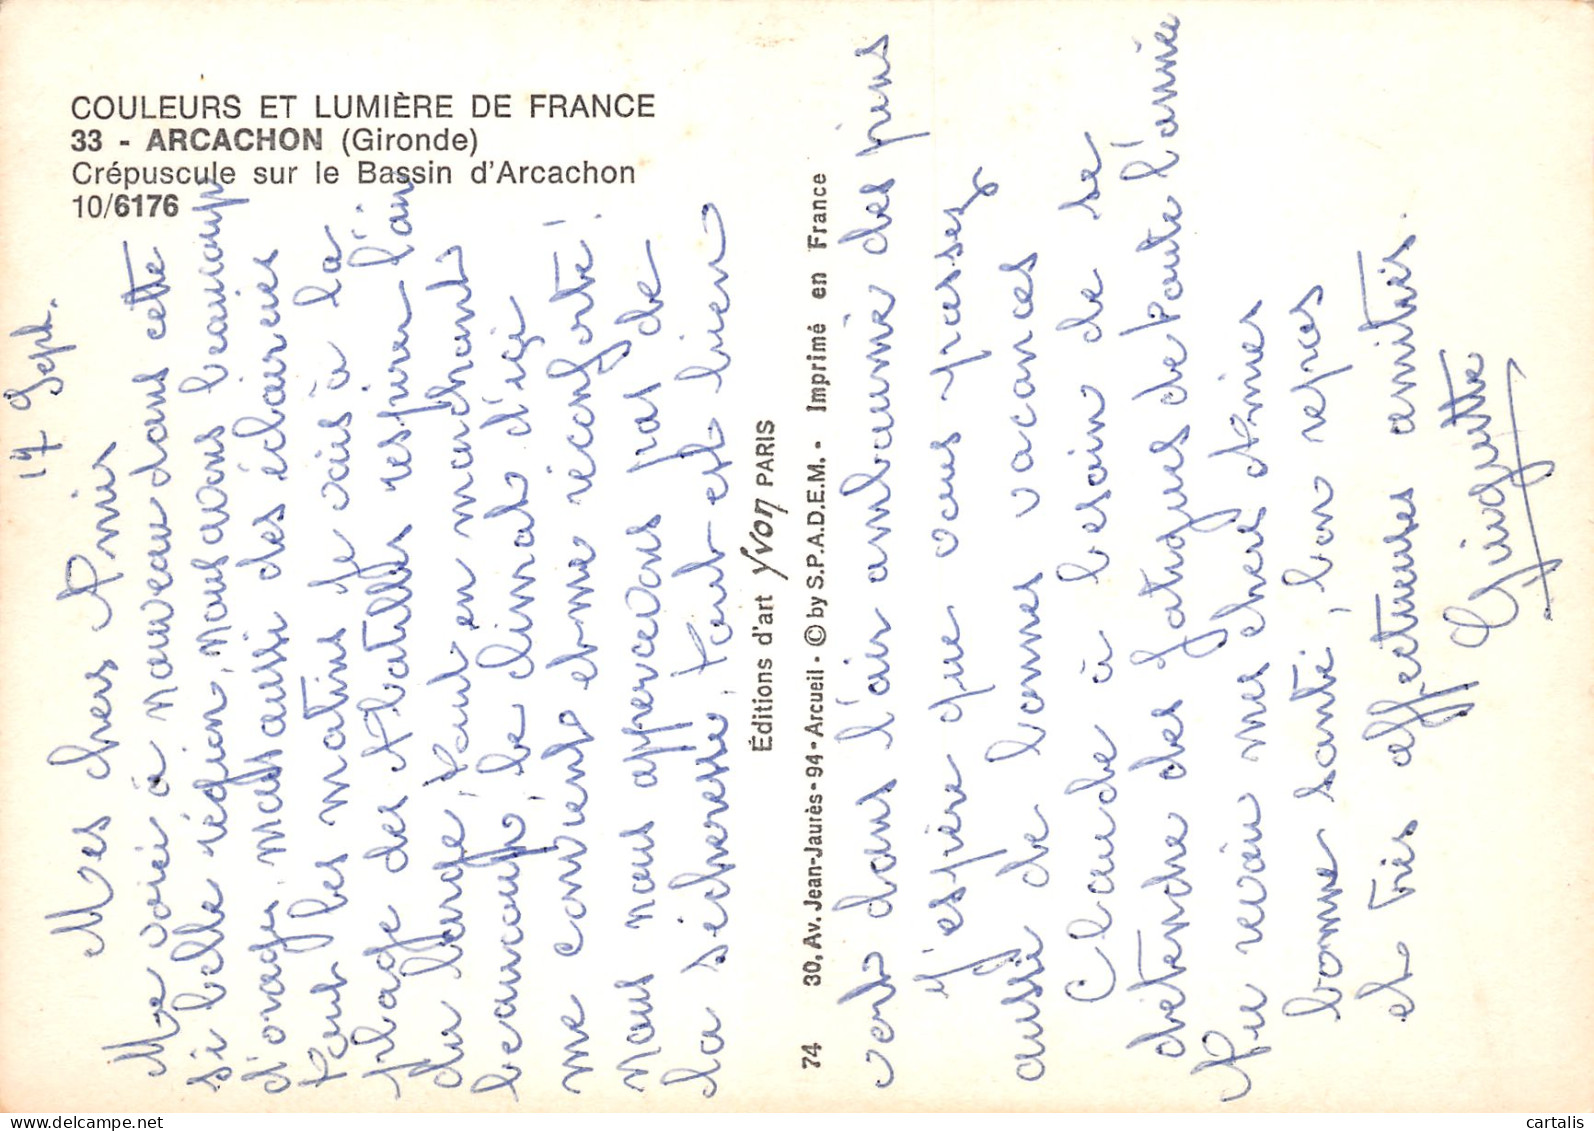 COULEURS ET LUMIÈRE DE FRANCE
33 - ARCACHON (Gironde)
Crépuscule sur le Bassin d'Arcachon
10/6176
17 Sept.
Mes chers Amis
Me voici à nouveau dans cette
si belle région, nous avons beaucoup
d'orages mais aussi des éclaircies
tout les matins je vais à la
plage des Abatilles respirer l'air
du large, tout en marchant
beaucoup, le climat d'ici
me convient et me réconforte!
nous nous appercevons pas de
la sécheresse, tout est bien
Éditions d'art Yvon PARIS
74 30, Av. Jean-Jaurès - 94 - Arcueil - © by S.P.A.D.E.M. • Imprimé en France
vert dans l'air embaumé des pins
J'espère que vous passez
aussi de bonnes vacances
Claude a besoin de se
détendre des fatigues de toute l'année
Au revoir mes chers Amies
bonne santé, bon repos
et très affectueuses amitiés.
Guiguitte
cartalis
www.delcampe.net